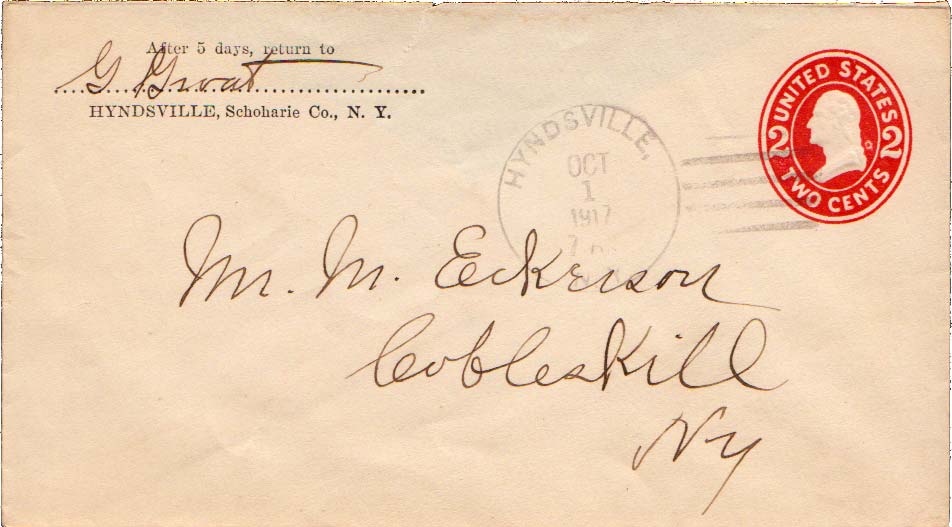 After 5 days, return to
G. Groat
HYNDSVILLE, Schoharie Co., N. Y.
HYNDSVILLE,
OCT
1
1917
7
UNITED STATES
2 2
TWO CENTS
Mr. M. Eckerson
Cobleskill
NY